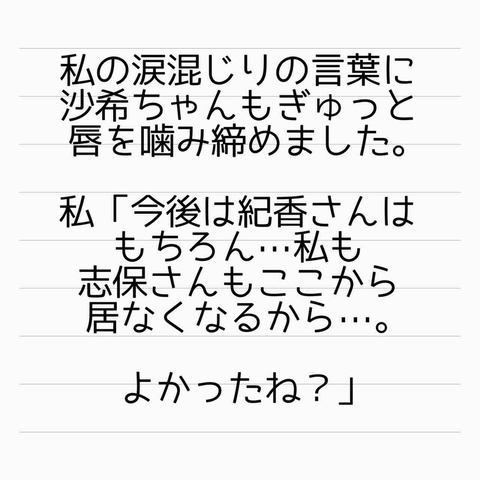 私の涙混じりの言葉に
沙希ちゃんもぎゅっと
唇を噛み締めました。
私「今後は紀香さんは
もちろん…私も
志保さんもここから
居なくなるから…。
よかったね？」